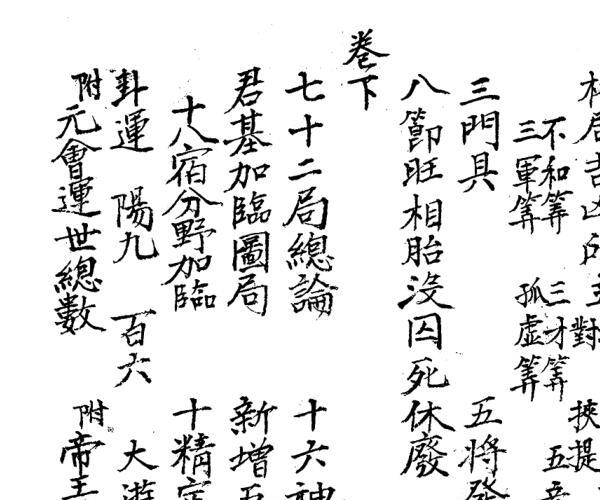 不和筭 三才筭 五音
三軍筭 孤虛筭
三門具 五將發
八節旺相胎沒囚死休廢
卷下
七十二局總論 十六神
君基加臨圖局 新增五
十八宿分野加臨 十精
卦運 陽九 百六 大游
附元會運世總數 附帝王